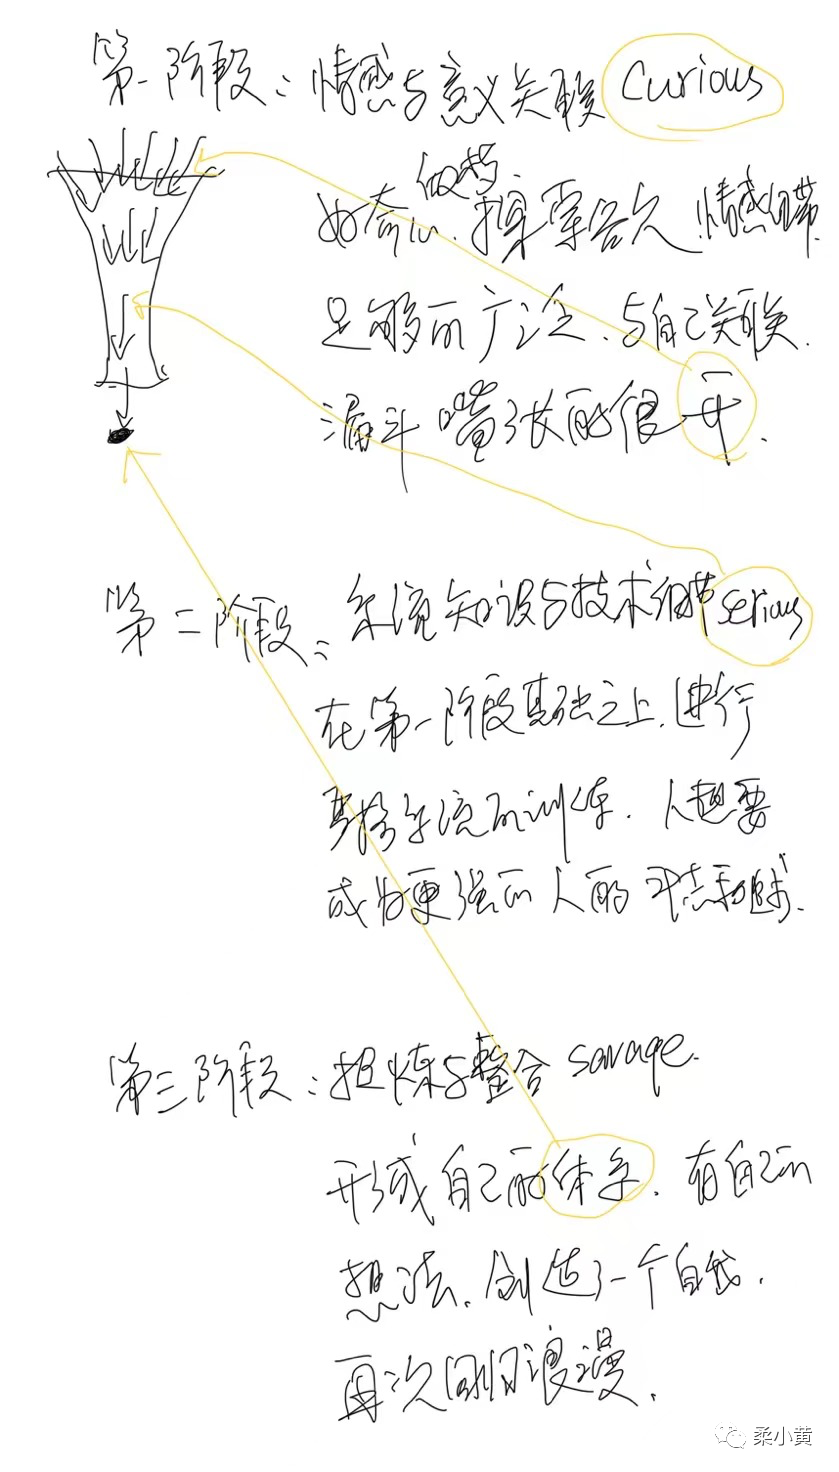 第一阶段：情感与意义关联 curious
好奇心、探索 情感纽带
足够的广泛、与自己关联.
漏斗嘴张的很开.
第二阶段：系统知识与技术细节 serious
在第一阶段基础之上，进行
系统的训练. 人想要
成为更强的人的
第三阶段：提炼与整合 savage.
形成自己的体系. 有自己的
想法. 创造了一个自我.
再次回归浪漫.
柔小黄